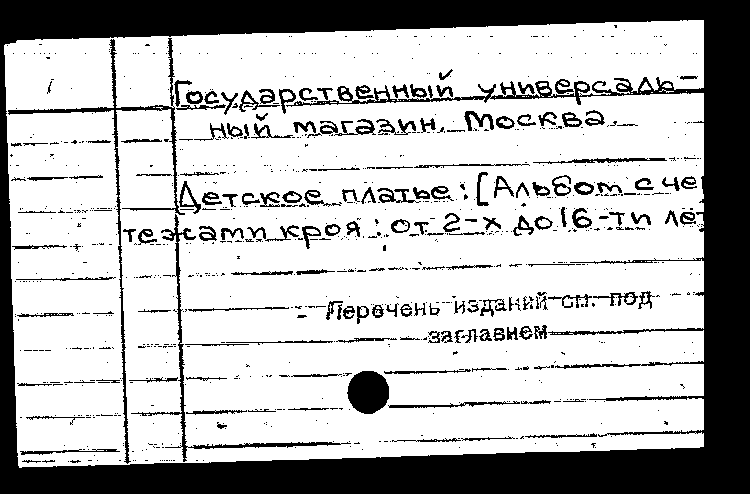 Государственный универсаль-
ный магазин. Москва.
Детское платье: [Альбом с че
тежами кроя: от 2-х до 16-ти лет
- Перечень изданий см. под
заглавием